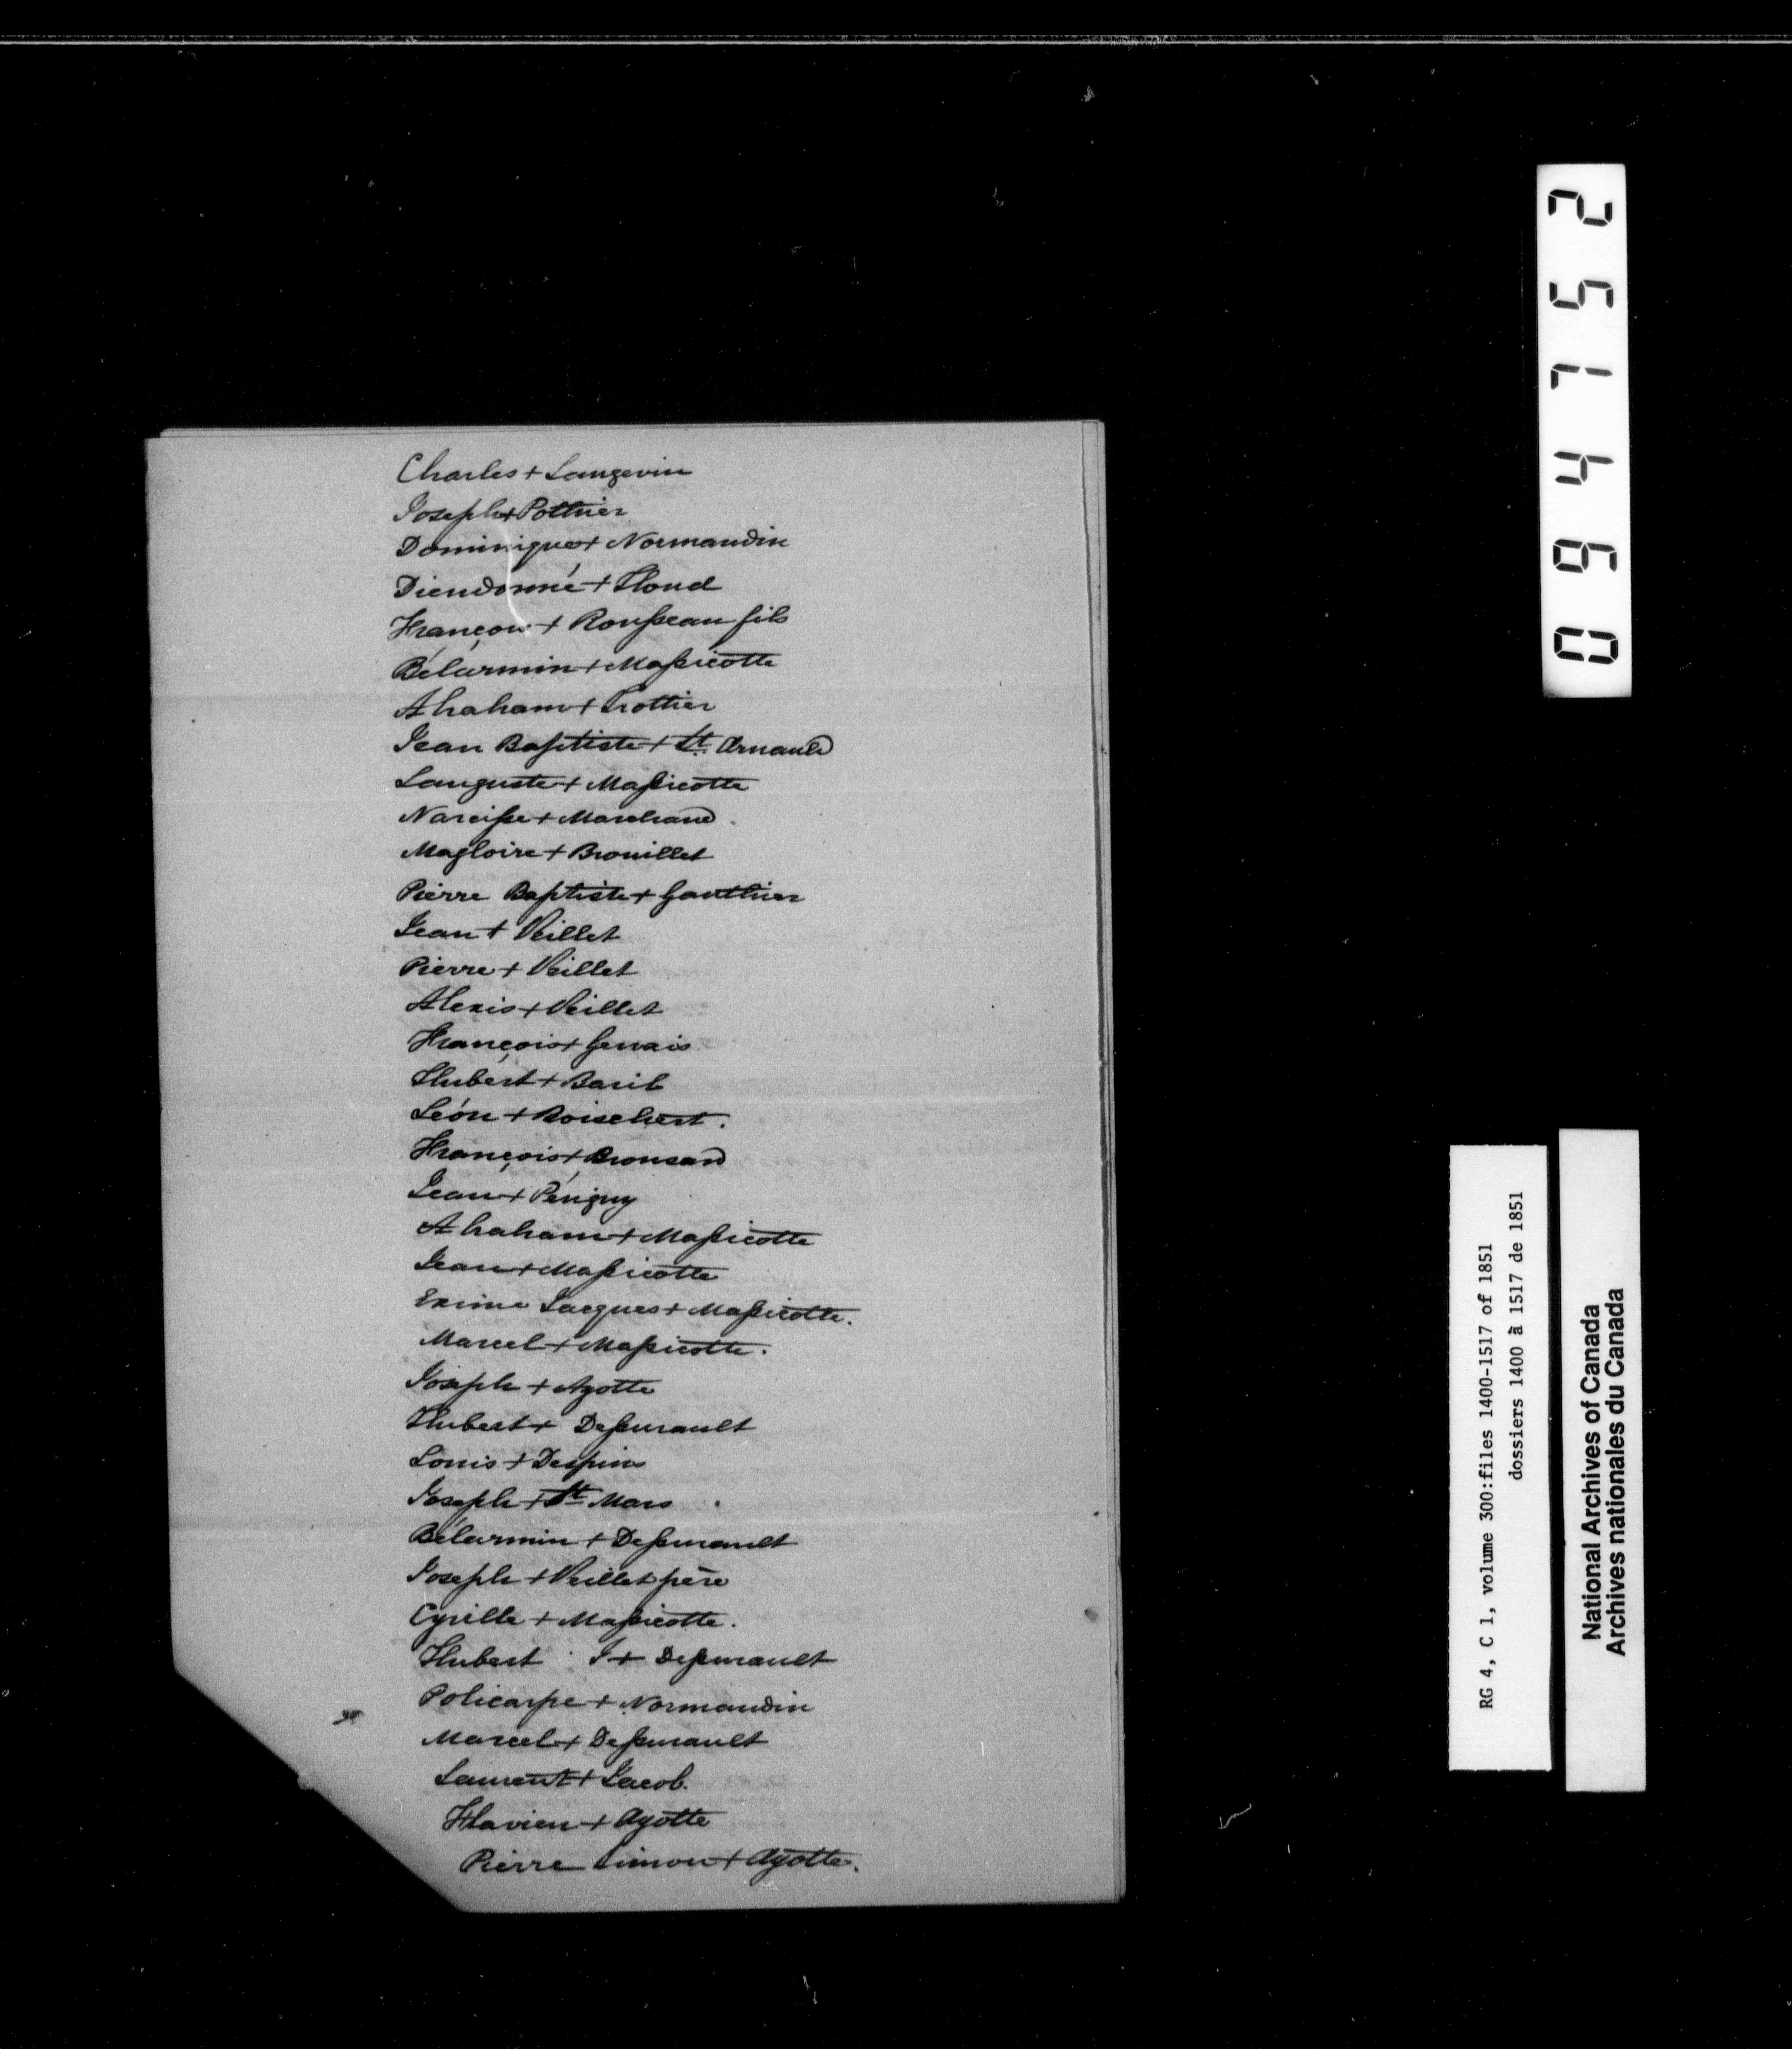 Charles + Langevin
Joseph + Pothier
Dominique + Normandin
Dieudonné + Houd
François + Rousseau fils
Bélarmin + Massicotte
Abraham + Trottier
Jean Baptiste + St. Arnaud
Languste + Massicotte
Narcisse + Marchand.
Magloire + Brouillet
Pierre Baptiste + Gauthier
Jean + Veillet
Pierre + Veillet
Alexis + Veillet
François + Gervais
Hubert + Baril
Léon + Boischert.
François + Bronsard
Jean + Périgny
Abraham + Massicotte
Jean + Massicotte
Exime Jacques + Massicotte.
Marcel + Massicotte.
Joseph + Ayotte
Hubert + Dessurault
Louis + Despins
Joseph + St Mars
Bélarmin + Dessurault
Joseph + Veillet père
Cyrille + Massicotte.
Hubert J + Dessurault
Policarpe + Normandin
Marcel + Dessurault
Laurent + Jacob.
Flavien + Ayotte
Pierre Simon + Ayotte.
094752
RG 4, C 1, volume 300:files 1400-1517 of 1851
dossiers 1400 à 1517 de 1851
National Archives of Canada
Archives nationales du Canada